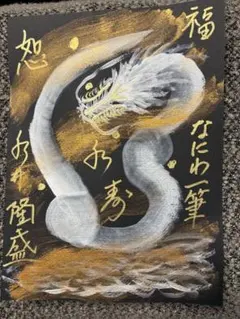 福
なにわ一筆
寿
恕
隆盛